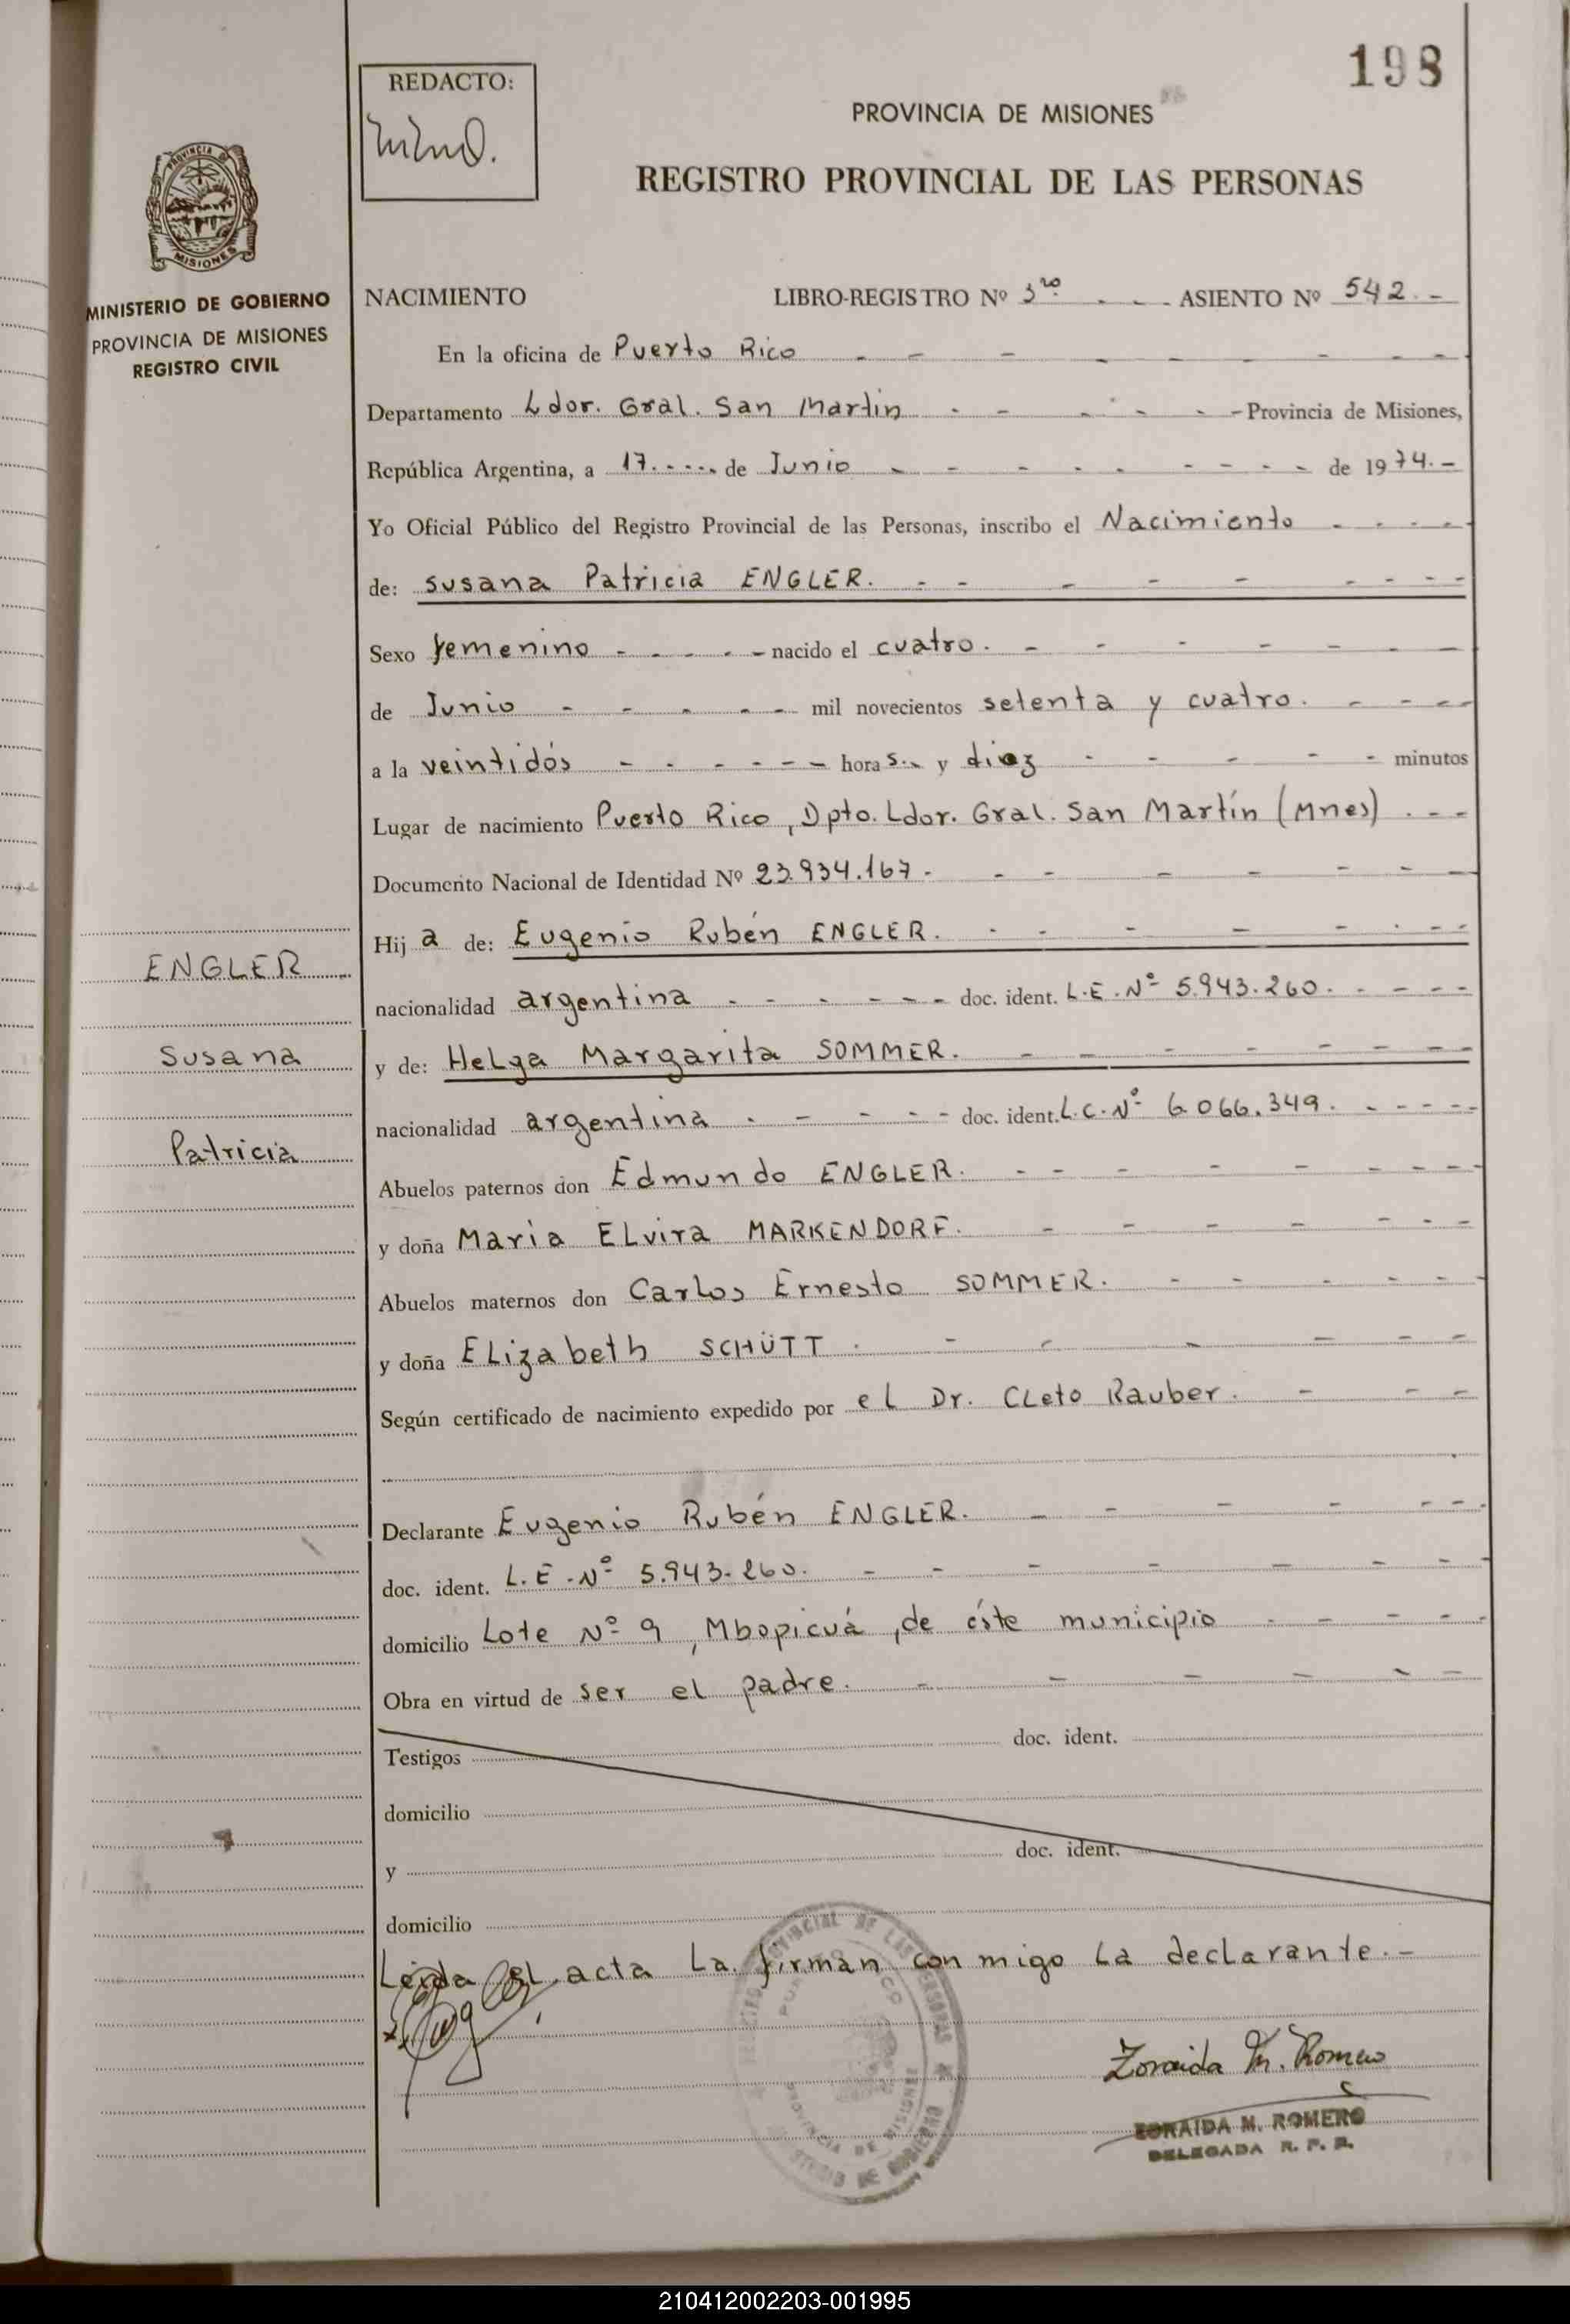 198
REDACTO:
PROVINCIA DE MISIONES
REGISTRO PROVINCIAL DE LAS PERSONAS
PROVINCIA DE MISIONES
MINISTERIO DE GOBIERNO
PROVINCIA DE MISIONES
REGISTRO CIVIL
NACIMIENTO LIBRO-REGISTRO Nº 3ro - - - ASIENTO Nº 542. -
En la oficina de Puerto Rico
Departamento Ldor. Gral. San Martin - Provincia de Misiones,
República Argentina, a 17. - de Junio - de 1974. -
Yo Oficial Público del Registro Provincial de las Personas, inscribo el Nacimiento
de: Susana Patricia ENGLER.
Sexo femenino - nacido el cuatro.
de Junio - mil novecientos setenta y cuatro.
a la veintidós - horas.- y diez - minutos
Lugar de nacimiento Puerto Rico, Dpto. Ldor. Gral. San Martín (Mnes)
Documento Nacional de Identidad Nº 23.934.167.
Hija de: Eugenio Rubén ENGLER.
ENGLER
nacionalidad argentina - doc. ident. L.E. Nº 5.943.260.
Susana
y de: Helga Margarita SOMMER.
nacionalidad argentina - doc. ident. L.C. Nº 6.066.349.
Patricia
Abuelos paternos don Edmundo ENGLER.
y doña Maria Elvira MARKENDORF.
Abuelos maternos don Carlos Ernesto SOMMER.
y doña Elizabeth SCHÜTT.
Según certificado de nacimiento expedido por el Dr. Cleto Rauber.
Declarante Eugenio Rubén ENGLER.
doc. ident. L.E. Nº 5.943.260.
domicilio Lote Nº 9, Mbopicuá, de éste municipio
Obra en virtud de ser el padre.
Testigos doc. ident.
domicilio
y doc. ident.
domicilio
Leida el acta la firman conmigo la declarante.-
Zoraida M. Romero
ZORAIDA M. ROMERO
DELEGADA R. P. P.
210412002203-001995